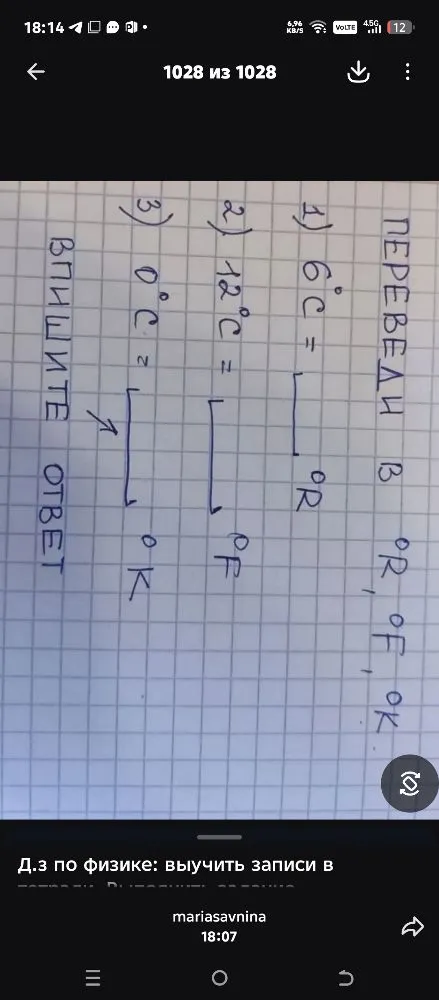 18:14
6,96 KB/S
VoLTE
4.5G
12
1028 из 1028
ПЕРЕВЕДИ В °R, °F, °K
1) 6°C = °R
2) 12°C = °F
3) 0°C = °K
ВПИШИТЕ ОТВЕТ
Д.з по физике: выучить записи в
тетради. Выполнить задание
mariasavnina
18:07